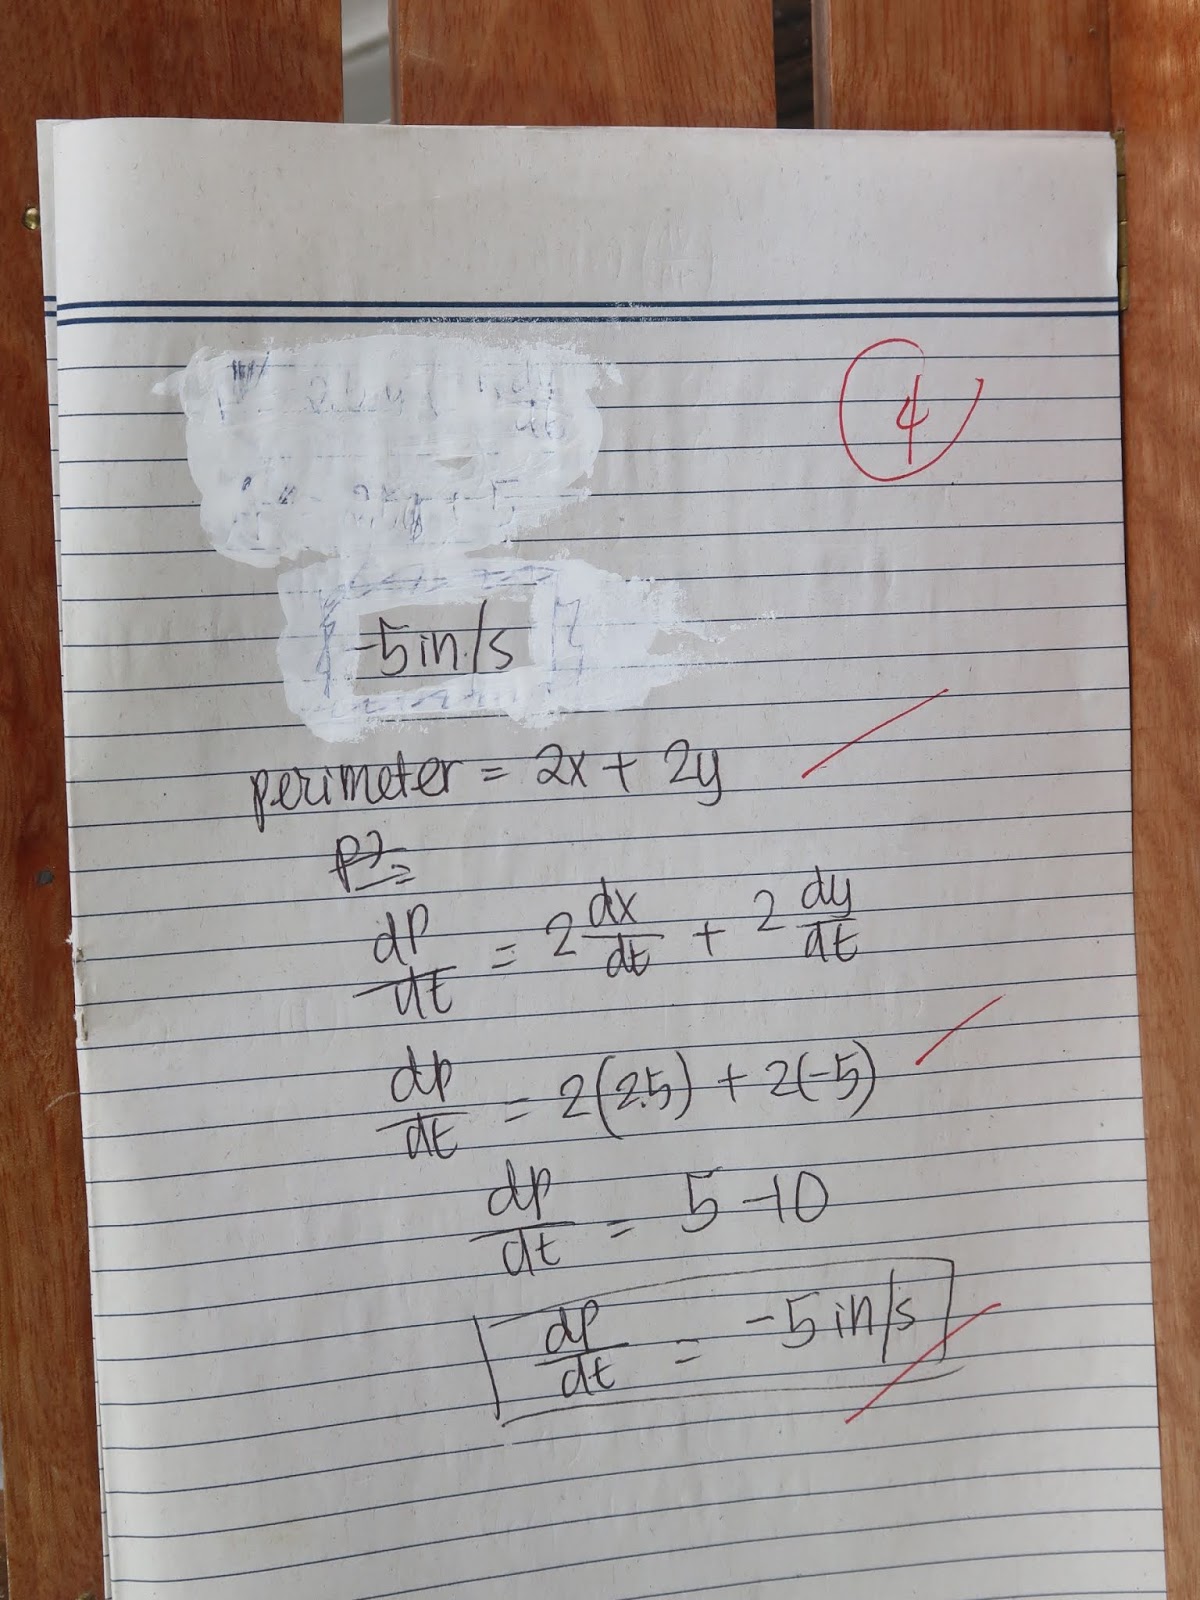 4
-5in/s
perimeter = 2x + 2y
dP/dt = 2 dx/dt + 2 dy/dt
dp/dt = 2(2.5) + 2(-5)
dp/dt = 5 -10
dP/dt = -5in/s